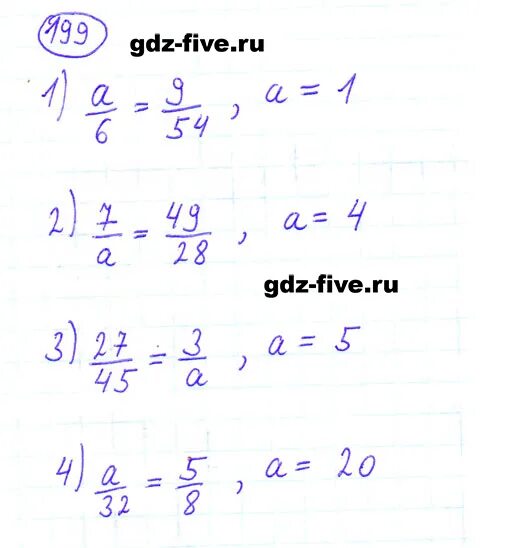 199
gdz-five.ru
1) a/6 = 9/54, a = 1
2) 7/a = 49/28, a = 4
gdz-five.ru
3) 27/45 = 3/a, a = 5
4) a/32 = 5/8, a = 20